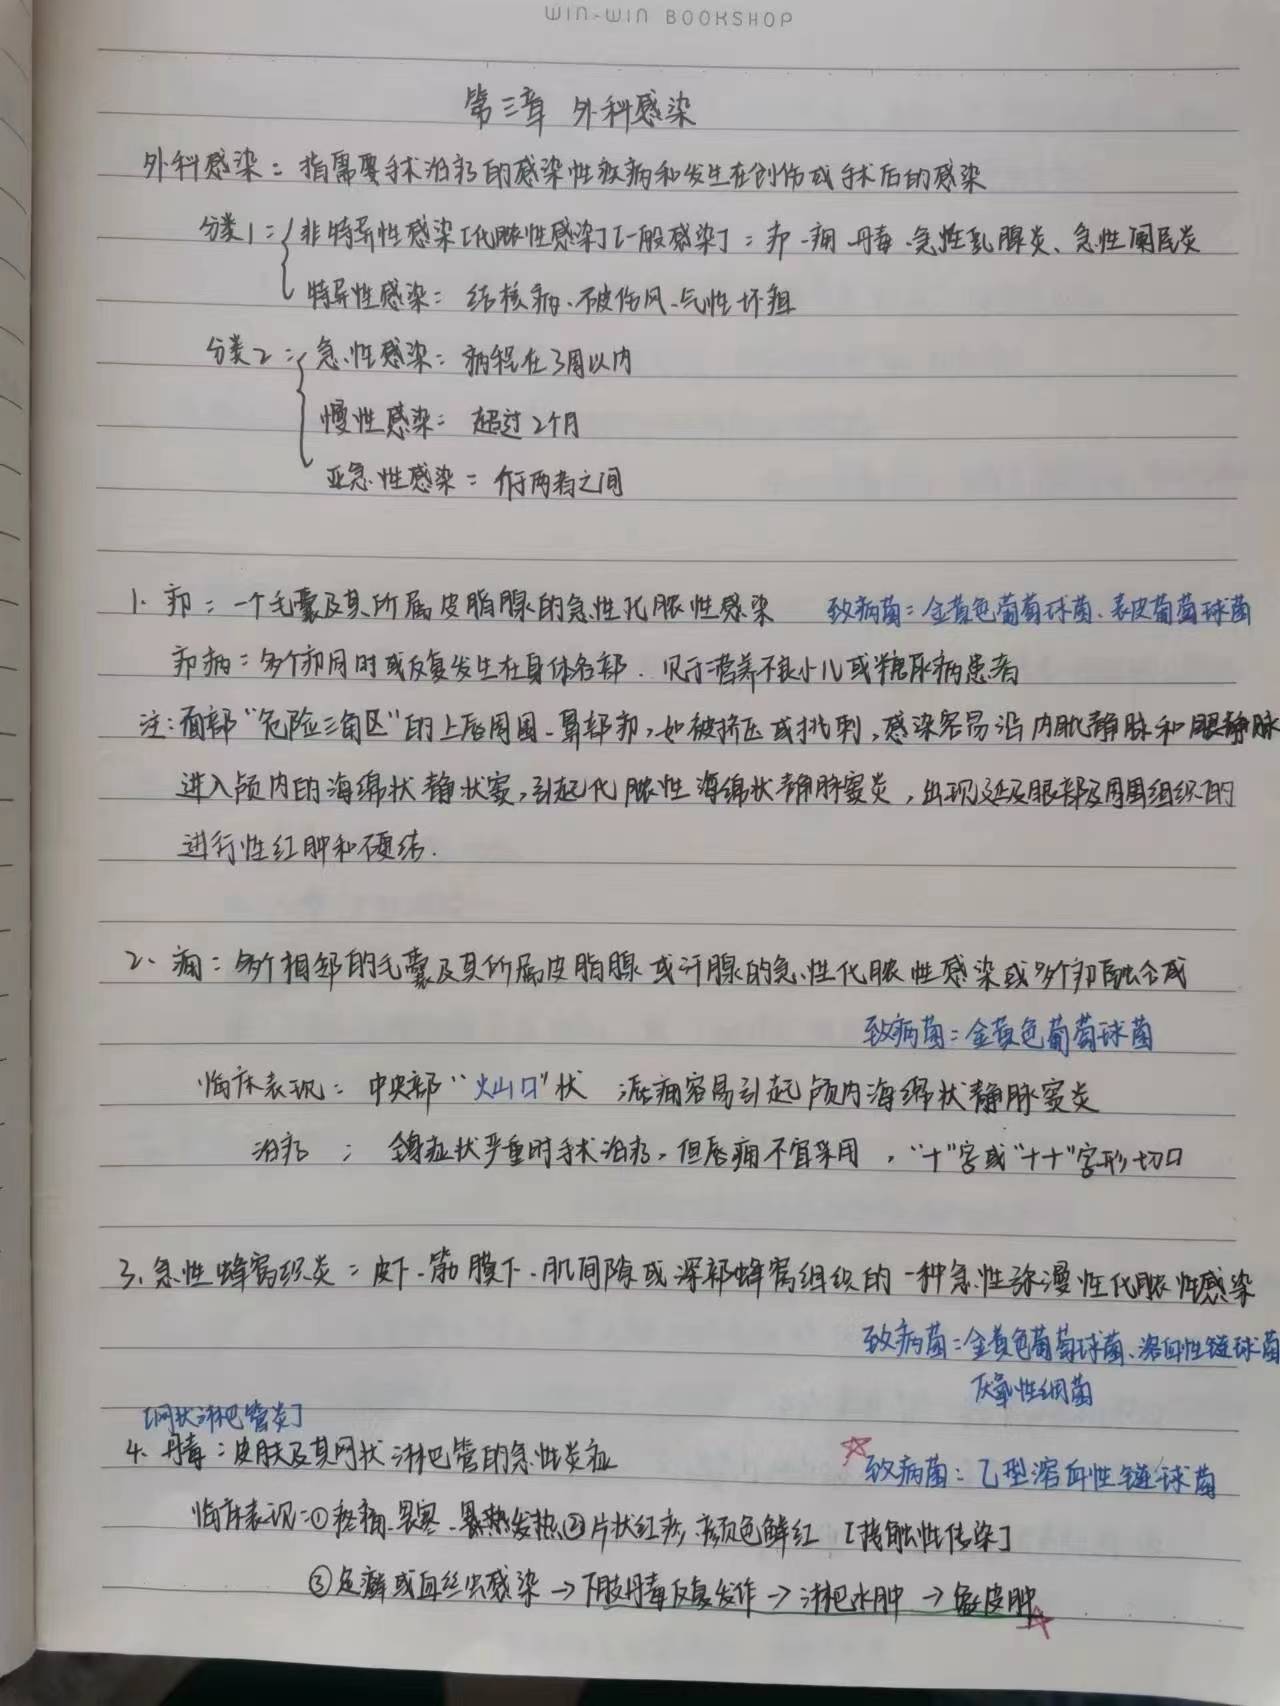 WIN-WIN BOOKSHOP
第三章 外科感染
外科感染：指需要手术治疗的感染性疾病和发生在创伤或手术后的感染
分类1：非特异性感染[化脓性感染][一般感染]：疖、痈、丹毒、急性乳腺炎、急性阑尾炎
特异性感染：结核病、破伤风、气性坏疽
分类2：急性感染：病程在3周以内
慢性感染：超过2个月
亚急性感染：介于两者之间
1. 疖：一个毛囊及其所属皮脂腺的急性化脓性感染 致病菌：金黄色葡萄球菌、表皮葡萄球菌
疖病：多个疖同时或反复发生在身体各部．见于营养不良小儿或糖尿病患者
注：面部“危险三角区”的上唇周围、鼻部疖，如被挤压或挑刺，感染容易沿内眦静脉和眼静脉
进入颅内的海绵状静状窦，引起化脓性海绵状静脉窦炎，出现延及眼部及周围组织的
进行性红肿和硬结．
2、痈：多个相邻的毛囊及其所属皮脂腺或汗腺的急性化脓性感染或多个疖融合成
致病菌：金黄色葡萄球菌
临床表现：中央部“火山口”状 唇痈容易引起颅内海绵状静脉窦炎
治疗：全身症状严重时手术治疗，但唇痈不宜采用，“十”字或“十十”字形切口
3、急性蜂窝织炎：皮下、筋膜下、肌间隙或深部蜂窝组织的一种急性弥漫性化脓性感染
致病菌：金黄色葡萄球菌、溶血性链球菌
厌氧性细菌
[网状淋巴管炎]
4、丹毒：皮肤及其网状淋巴管的急性炎症 致病菌：乙型溶血性链球菌
临床表现：①疼痛、畏寒、发热②片状红疹，颜色鲜红 [接触性传染]
③足癣或血丝虫感染→下肢丹毒反复发作→淋巴水肿→象皮肿